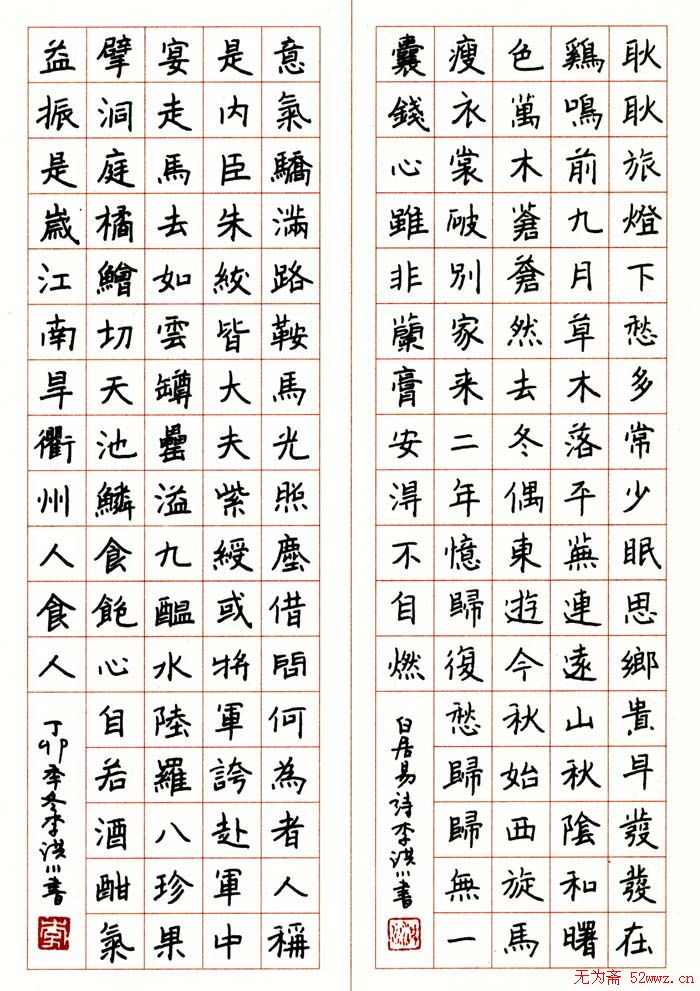 耿耿旅燈下愁多常少眠思鄉貴早發發在
鷄鳴前九月草木落平蕪連遠山秋陰和曙
色萬木蒼蒼然去冬偶東遊今秋始西旋馬
瘦衣裳破別家来二年憶歸復愁歸歸無一
囊錢心雖非蘭膏安得不自燃
白居易詩李洪川書
意氣驕滿路鞍馬光照塵借問何為者人稱
是內臣朱紱皆大夫紫綬或將軍誇赴軍中
宴走馬去如雲罇罍溢九醞水陸羅八珍果
擘洞庭橘鱠切天池鱗食飽心自若酒酣氣
益振是歲江南旱衢州人食人
丁卯季冬李洪川書
无为斋 52wwz.cn